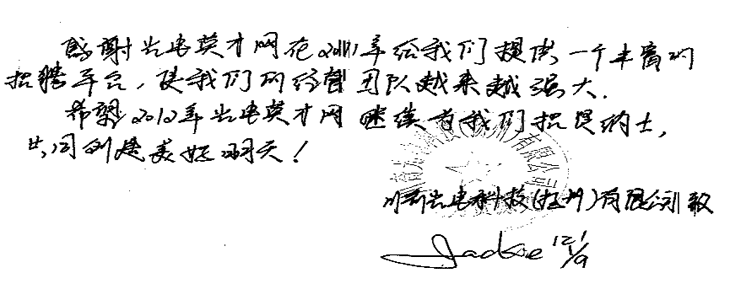 感谢光电英才网在2011年给我们提供一个丰富的
招聘平台，使我们的经营团队越来越强大.
希望2012年光电英才网继续为我们招贤纳士,
共同创建美好明天！
光电科技(扬州)有限公司 致
Jackie 12/1/9